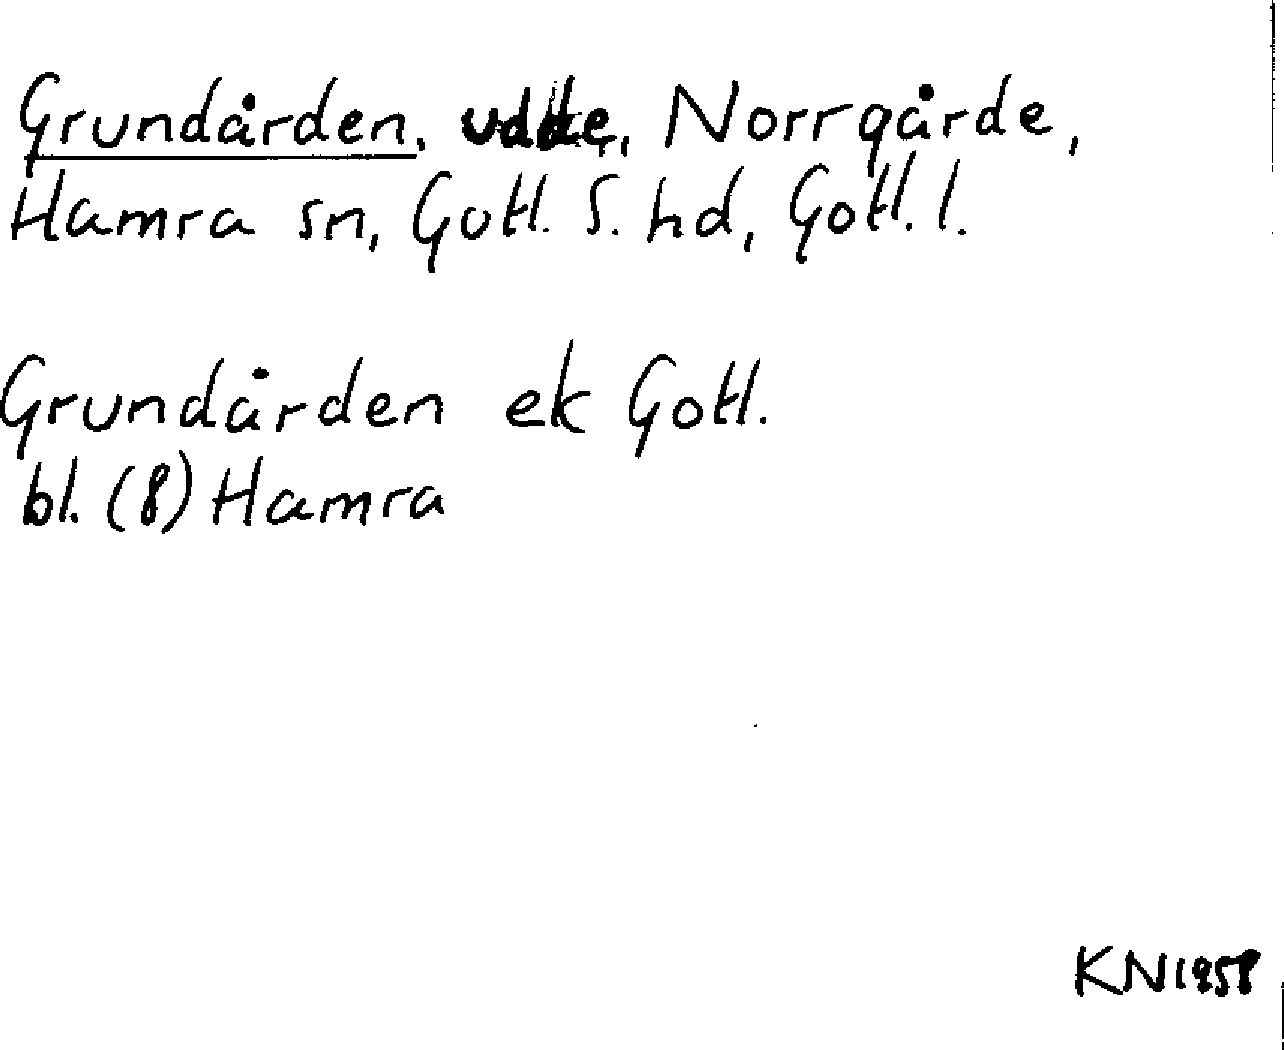 Grundården, udde, Norrgårde,
Hamra sn, Gotl. S. hd, Gotl. l.
Grundården ek Gotl.
bl. (8) Hamra
KN1958